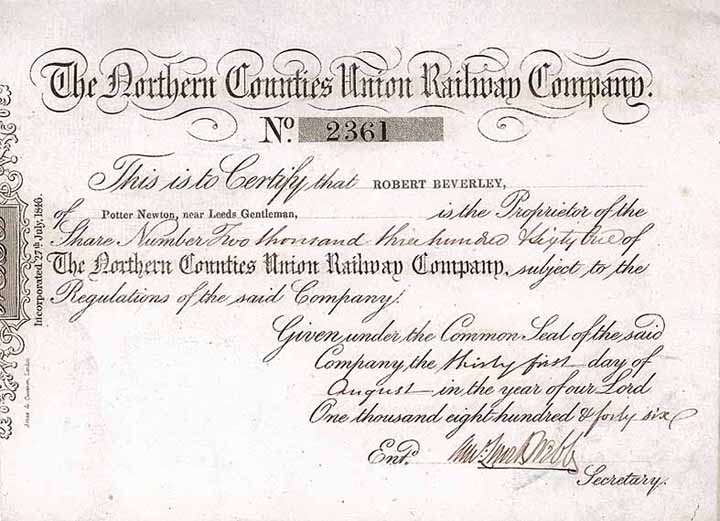 The Northern Counties Union Railway Company.
No. 2361
This is to Certify that ROBERT BEVERLEY,
of Potter Newton, near Leeds Gentleman, is the Proprietor of the
Share Number Two thousand three hundred & sixty one of
The Northern Counties Union Railway Company, subject to the
Regulations of the said Company.
Given under the Common Seal of the said
Company the thirty first day of
August in the year of our Lord
One thousand eight hundred & forty six
Entd.
Secretary.
Incorporated 27th July, 1846.